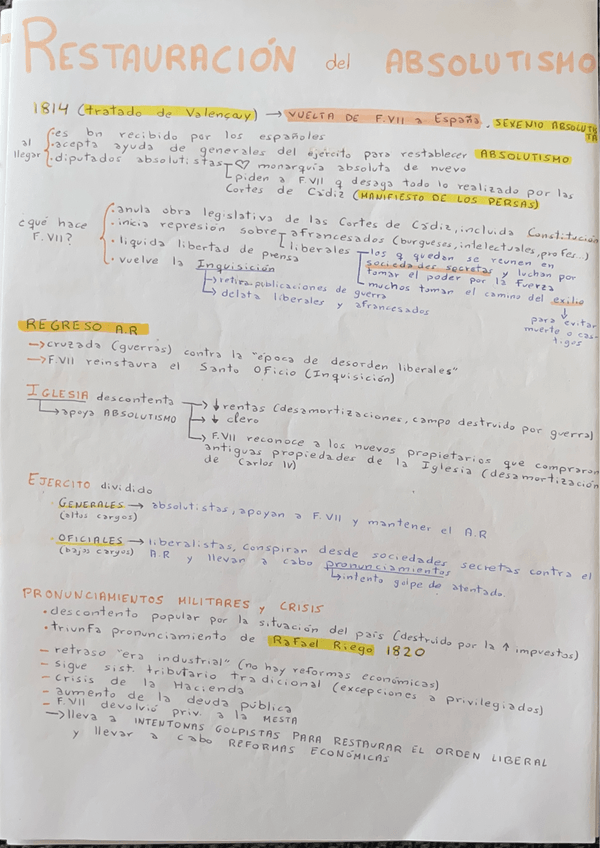 RESTAURACIÓN del ABSOLUTISMO
1814 (tratado de Valençay) → VUELTA DE F.VII a España. SEXENIO ABSOLUTISTA
al llegar
· es bn recibido por los españoles
· acepta ayuda de generales del ejército para restablecer ABSOLUTISMO
· diputados absolutistas → ♡ monarquía absoluta de nuevo
↳ piden a F.VII q desaga todo lo realizado por las
Cortes de Cádiz (MANIFIESTO DE LOS PERSAS)
¿qué hace F.VII?
· anula obra legislativa de las Cortes de Cádiz, incluida Constitución
· inicia represión sobre → afrancesados (burgueses, intelectuales, profes...)
↳ liberales → los q quedan se reunen en
sociedades secretas y luchan por
tomar el poder por la fuerza
↳ muchos toman el camino del exilio
↓
para evitar
muerte o cas-
tigos
· liquida libertad de prensa
· vuelve la Inquisición
↳ retira publicaciones de guerra
↳ delata liberales y afrancesados
REGRESO A.R
→ cruzada (guerras) contra la "época de desorden liberales"
→ F.VII reinstaura el Santo Oficio (Inquisición)
IGLESIA descontenta → ↓ rentas (desamortizaciones, campo destruido por guerra)
↳ apoya ABSOLUTISMO
→ ↓ clero
↳ F.VII reconoce a los nuevos propietarios que compraron
antiguas propiedades de la Iglesia (desamortización
de Carlos IV)
EJERCITO dividido
· GENERALES → absolutistas, apoyan a F.VII y mantener el A.R
(altos cargos)
· OFICIALES → liberalistas, conspiran desde sociedades secretas contra el
(bajos cargos) A.R y llevan a cabo pronunciamientos
↳ intento golpe de atentado.
PRONUNCIAMIENTOS MILITARES y CRISIS
· descontento popular por la situación del país (destruído por la ↑ impuestos)
· triunfa pronunciamiento de Rafael Riego 1820
- retraso "era industrial" (no hay reformas económicas)
- sigue sist. tributario tradicional (excepciones a privilegiados)
- crisis de la Hacienda
- aumento de la deuda pública
- F.VII devolvió priv. a la MESTA
→ lleva a INTENTONAS GOLPISTAS PARA RESTAURAR EL ORDEN LIBERAL
y llevar a cabo REFORMAS ECONÓMICAS